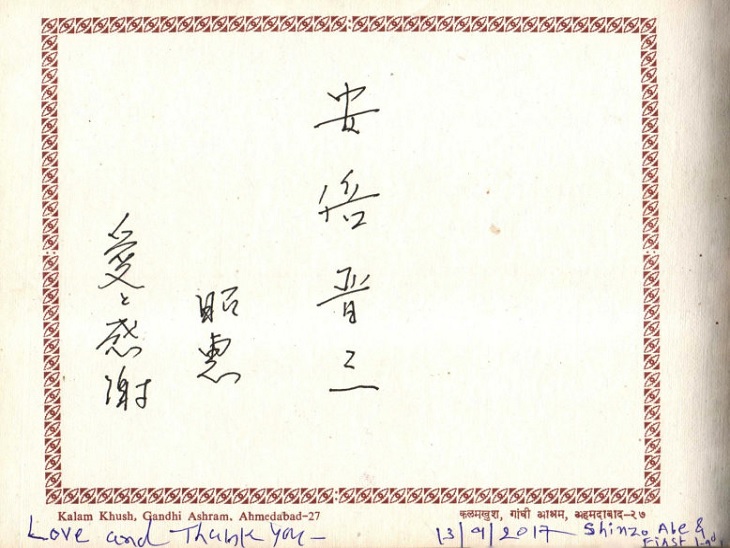 安倍晋三
昭恵
愛と感謝
Kalam Khush, Gandhi Ashram, Ahmedabad-27
कलमखुश, गांधी आश्रम, अहमदाबाद-२७
Love and Thank you -
13/9/2017 Shinzo Abe &
First Lady